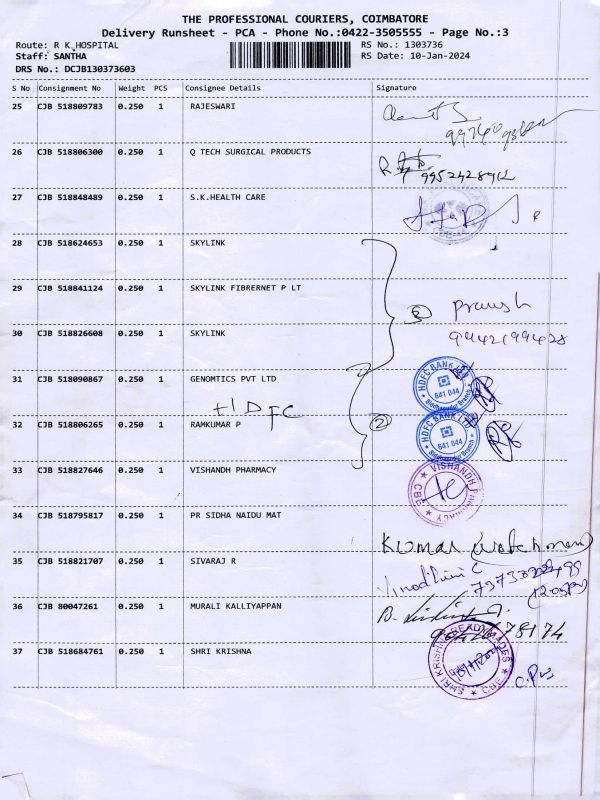 THE PROFESSIONAL COURIERS, COIMBATORE
Delivery Runsheet - PCA - Phone No.:0422-3505555 - Page No.:3
Route: R K HOSPITAL
RS No.: 1303736
Staff: SANTHA
RS Date: 10-Jan-2024
DRS No.: DCJB130373603
S No Consignment No Weight PCS Consignee Details Signature
25 CJB 518809783 0.250 1 RAJESWARI
26 CJB 518806300 0.250 1 Q TECH SURGICAL PRODUCTS
27 CJB 518848489 0.250 1 S.K.HEALTH CARE
28 CJB 518624653 0.250 1 SKYLINK
29 CJB 518841124 0.250 1 SKYLINK FIBRERNET P LT
30 CJB 518826608 0.250 1 SKYLINK
9942199428
31 CJB 518090867 0.250 1 GENOMTICS PVT LTD
HDFC BANK LTD
641 044
HDFC
32 CJB 518806265 0.250 1 RAMKUMAR P
② HDFC BANK LTD
641 044
33 CJB 518827646 0.250 1 VISHANDH PHARMACY
VISHANDH PHARMACY
CBE
34 CJB 518795817 0.250 1 PR SIDHA NAIDU MAT
Kumar watchman
35 CJB 518821707 0.250 1 SIVARAJ R
36 CJB 80047261 0.250 1 MURALI KALLIYAPPAN
37 CJB 518684761 0.250 1 SHRI KRISHNA
SHRI KRISHNA
CBE